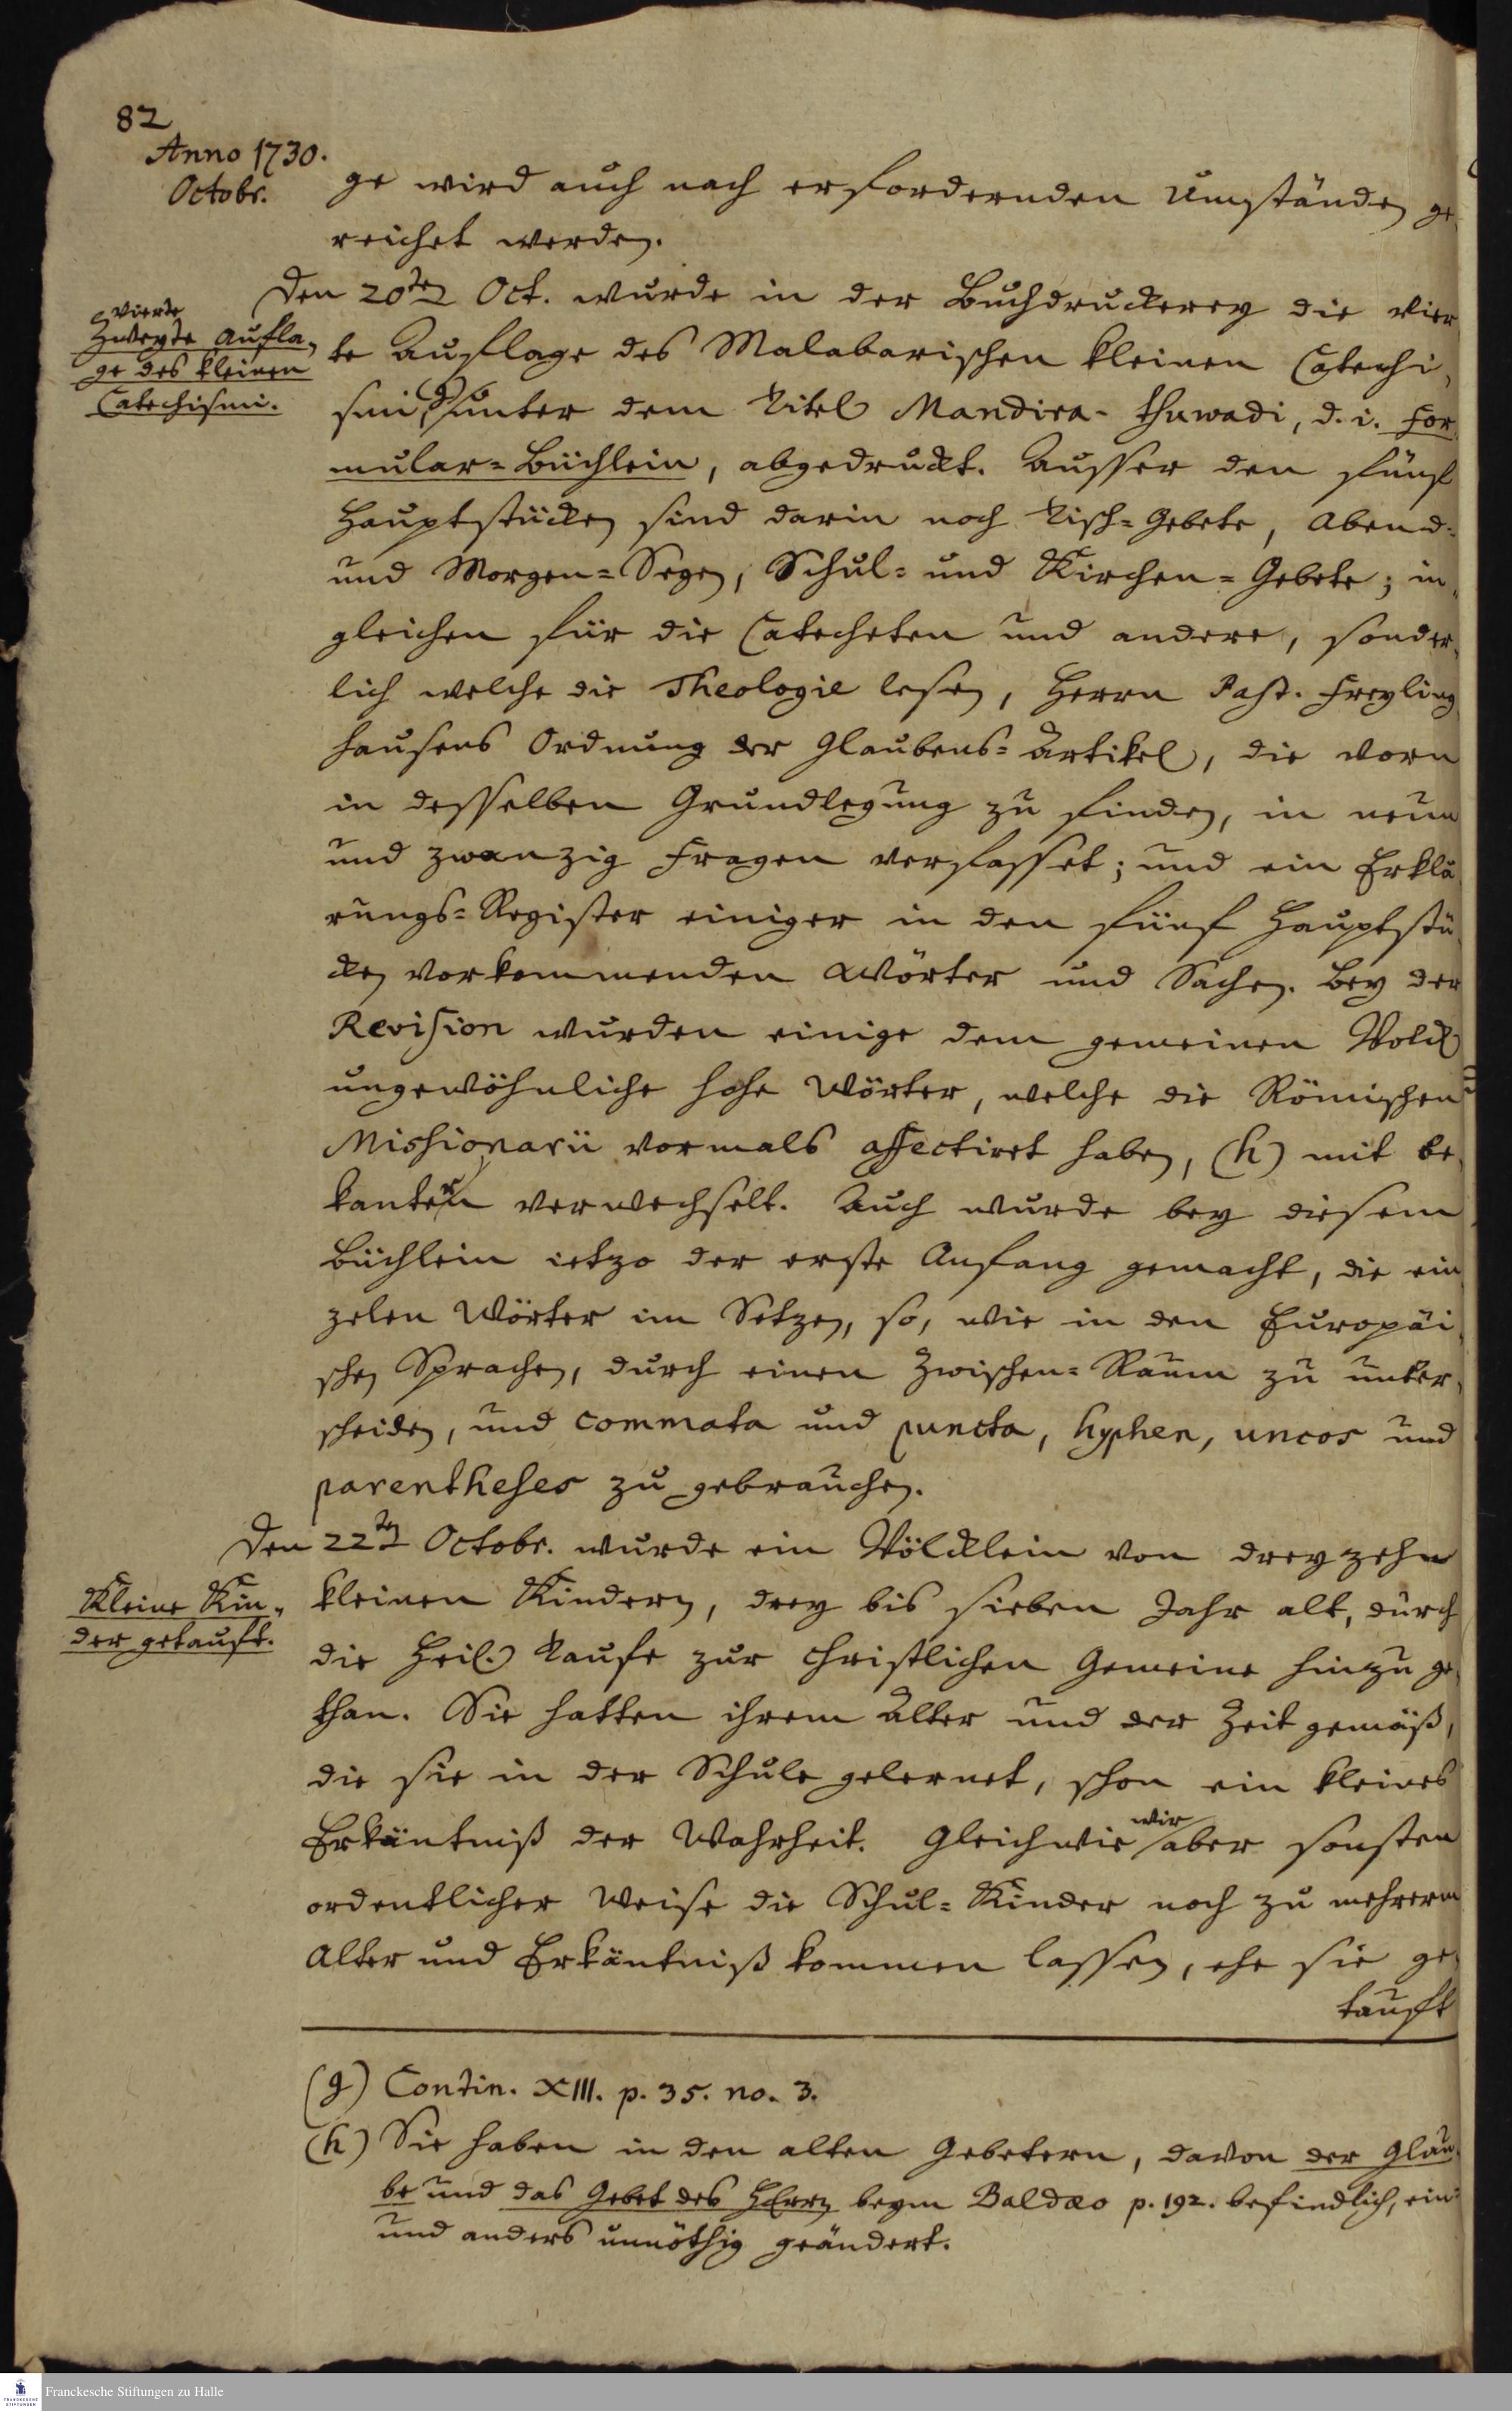 82
Anno 1730.
Octobr.
ge wird auch nach erfordernden Umständen ge
reichet werden.
Den 20ten Oct. wurde in der Buchdruckerey die vier
vierte
Zweyte Aufla-
ge des kleinen
Catechismi.
te Auflage des Malabarischen kleinen Catechi-
smi (g) unter dem Titel Mandira-thuwadi, d. i. For
mular-Büchlein, abgedruckt. Ausser den fünf
Hauptstücken sind darin noch Tisch-Gebete, Abend-
und Morgen-Segen, Schul- und Kirchen-Gebete; in-
gleichen für die Catecheten und andere, sonder-
lich welche die Theologie lesen, Herrn Past. Freyling
hausens Ordnung der Glaubens-Artikel, die vorn
in desselben Grundlegung zu finden, in neun
und zwanzig Fragen verfasset; und ein Erklä
rungs-Register einiger in den fünf Hauptstü
cken vorkommenden Wörter und Sachen. Bey der
Revision wurden einige dem gemeinen Volck
ungewöhnliche hohe Wörter, welche die Römischen
Missionarii vormals affectiret haben, (h) mit be-
kanten verwechselt. Auch wurde bey diesem
Büchlein ietzo der erste Anfang gemacht, die ein
zelen Wörter im Setzen, so, wie in den Europäi-
schen Sprachen, durch einen Zwischen-Raum zu unter-
scheiden, und commata und puncta, hyphen, uncos und
parentheses zu gebrauchen.
Den 22ten Octobr. wurde ein Völcklein von dreyzehn
Kleine Kin-
der getauft.
kleinen Kindern, drey bis sieben Jahr alt, durch
die Heil. Taufe zur Christlichen Gemeine hinzu ge
than. Sie hatten ihrem Alter und der Zeit gemäß,
die sie in der Schule gelernet, schon ein kleines
Erkäntniß der Wahrheit. Gleichwie wir aber sonsten
ordentlicher Weise die Schul-Kinder noch zu mehrerm
Alter und Erkäntniß kommen lassen, ehe sie ge-
tauft
(g) Contin. XIII. p. 35. no. 3.
(h) Sie haben in den alten Gebetern, davon der Glau
be und das Gebet des HErrn beym Baldæo p. 192. befindlich, ein
und anders unnöthig geändert.
Franckesche Stiftungen zu Halle